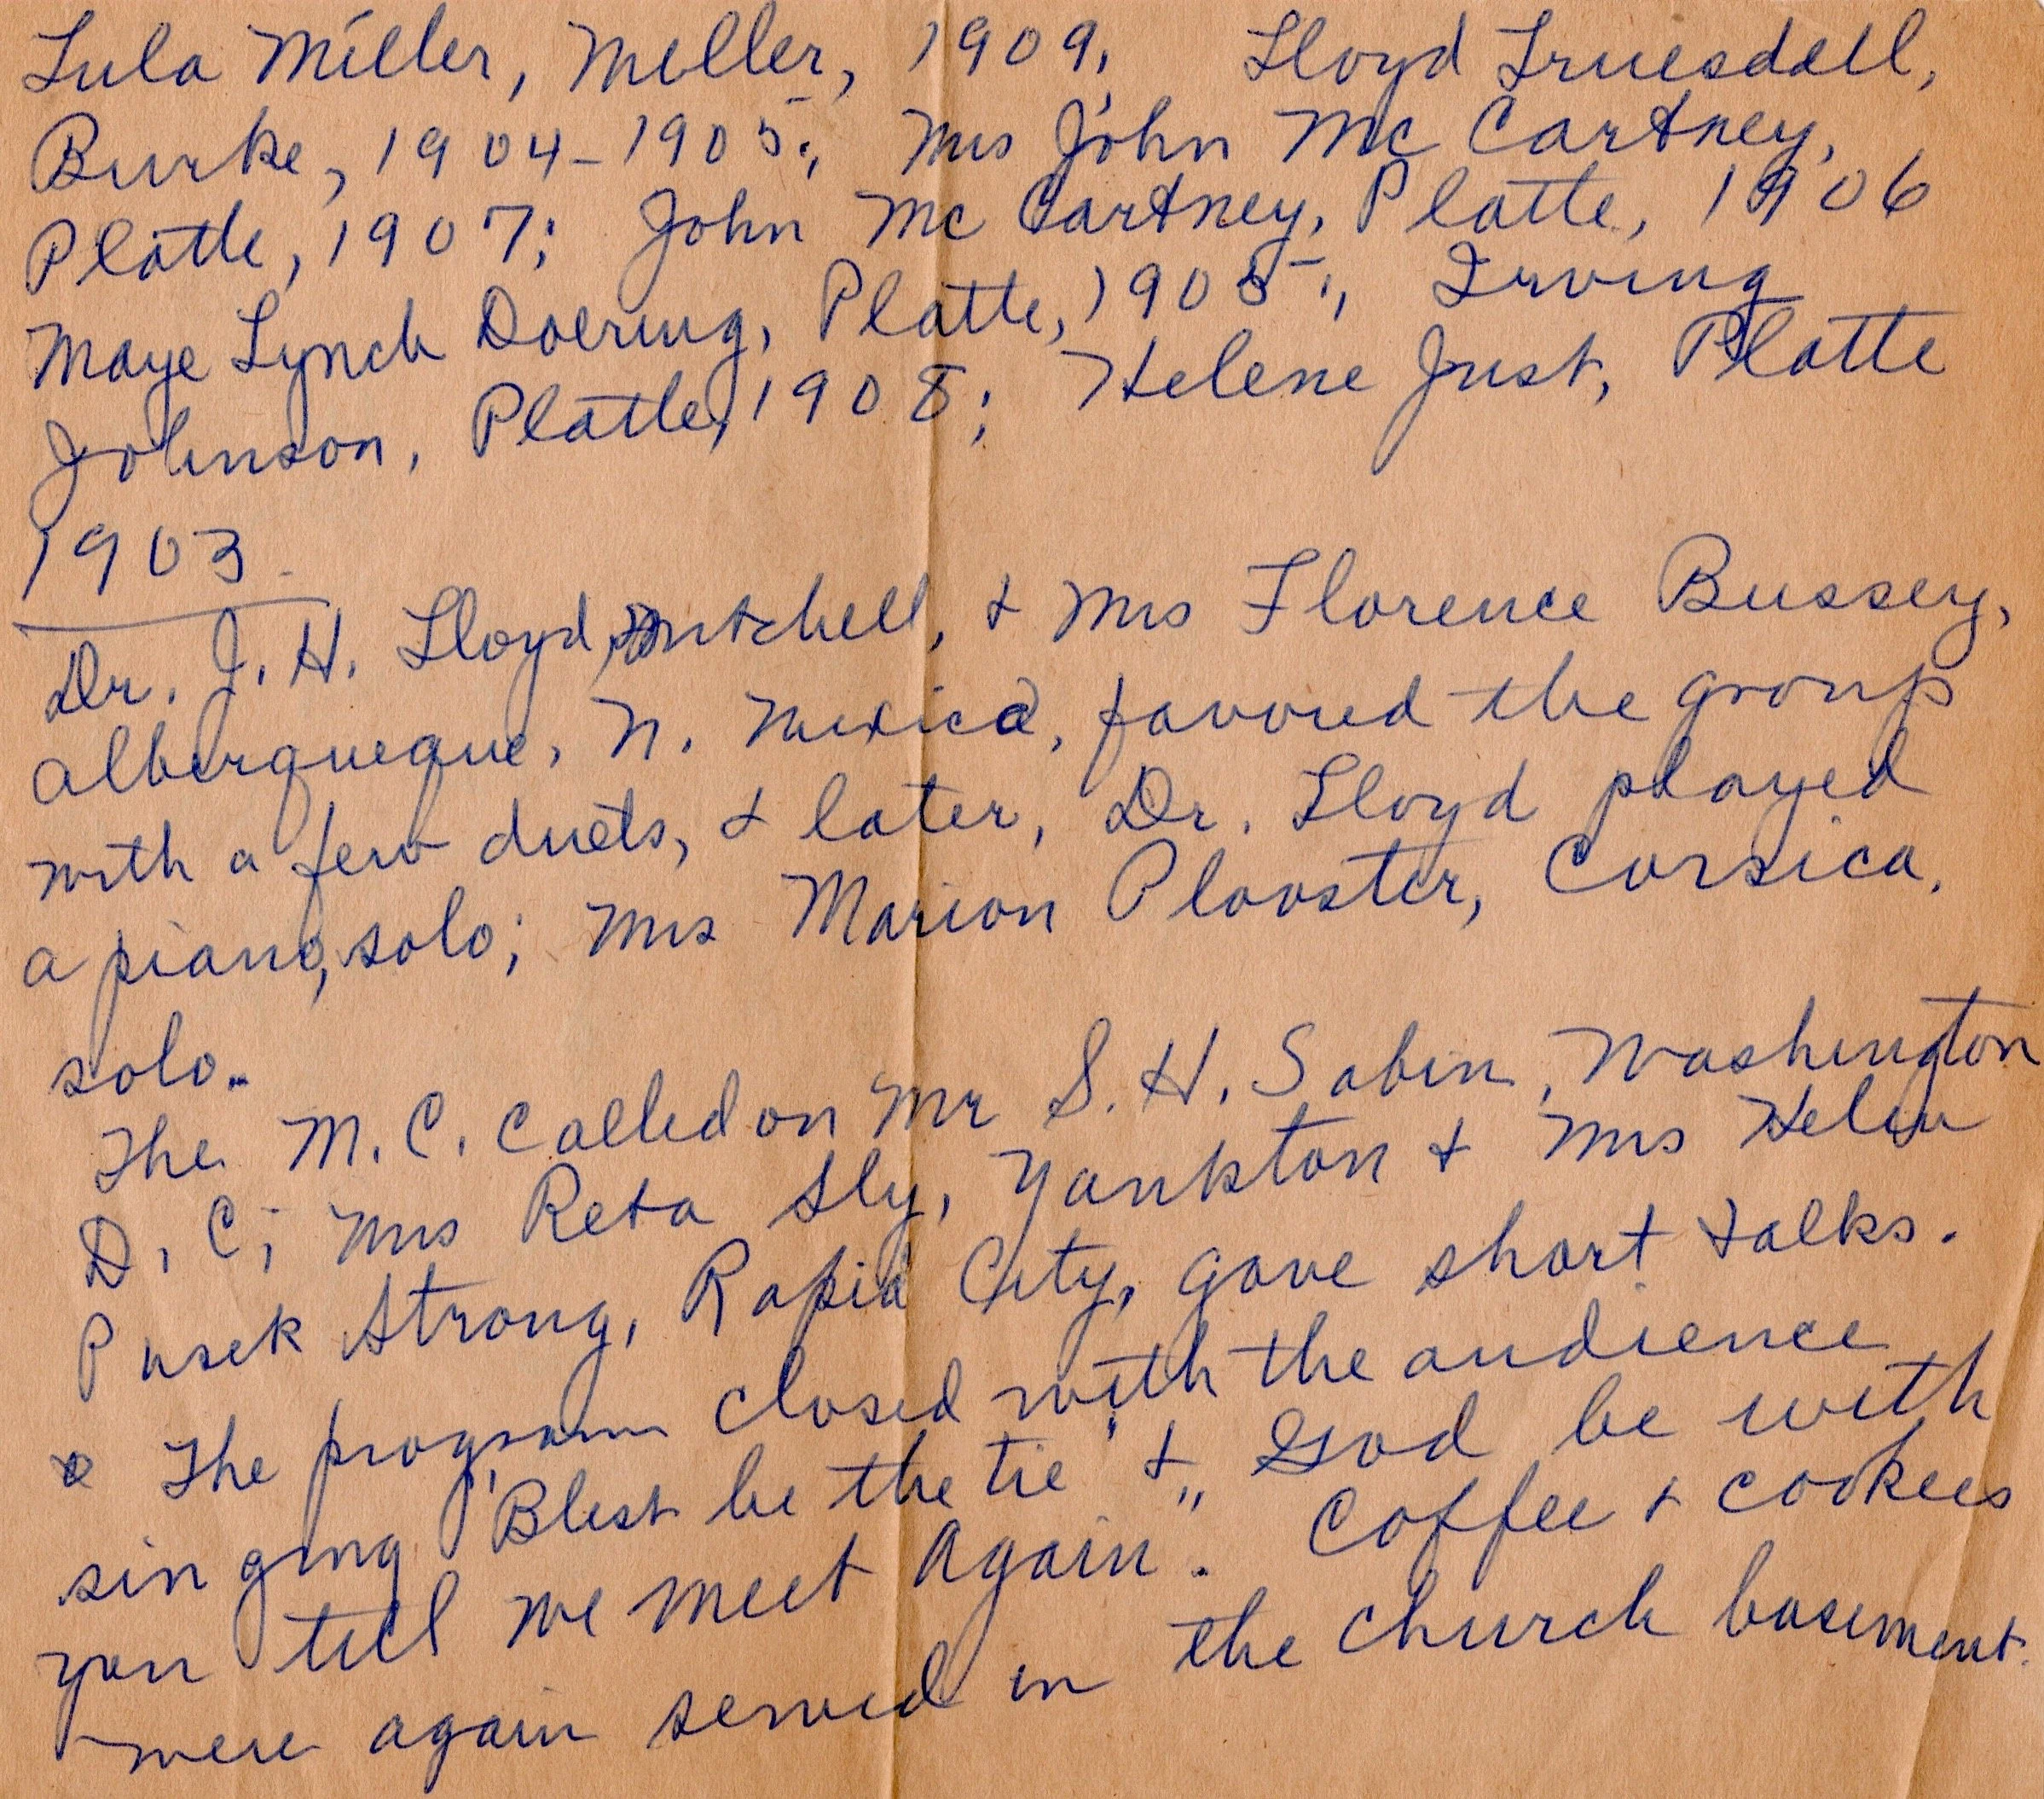 Lula Miller, Meller, 1909, Lloyd Truesdell,
Burke, 1904-1905; Mrs John Mc Cartney,
Platte, 1907; John Mc Cartney, Platte, 1906
Maye Lynch Doering, Platte, 1905; Irving
Johnson, Platte, 1908; Helene Just, Platte
1903.
Dr. J. H. Lloyd, Mitchell, & Mrs Florence Bussey,
Alburqueque, N. Mexico, favored the group
with a few duets, & later, Dr. Lloyd played
a piano, solo; Mrs Marion Plooster, Corsica.
solo.
The M. C. called on Mr S. H. Sabin, Washington
D. C; Mrs Reta Sly, Yankton & Mrs Helen
Pusek Strong, Rapid City, gave short talks.
The program closed with the audience
singing "Blest be the tie" & "God be with
you till we meet again". Coffee & cookies
were again served in the church basement.